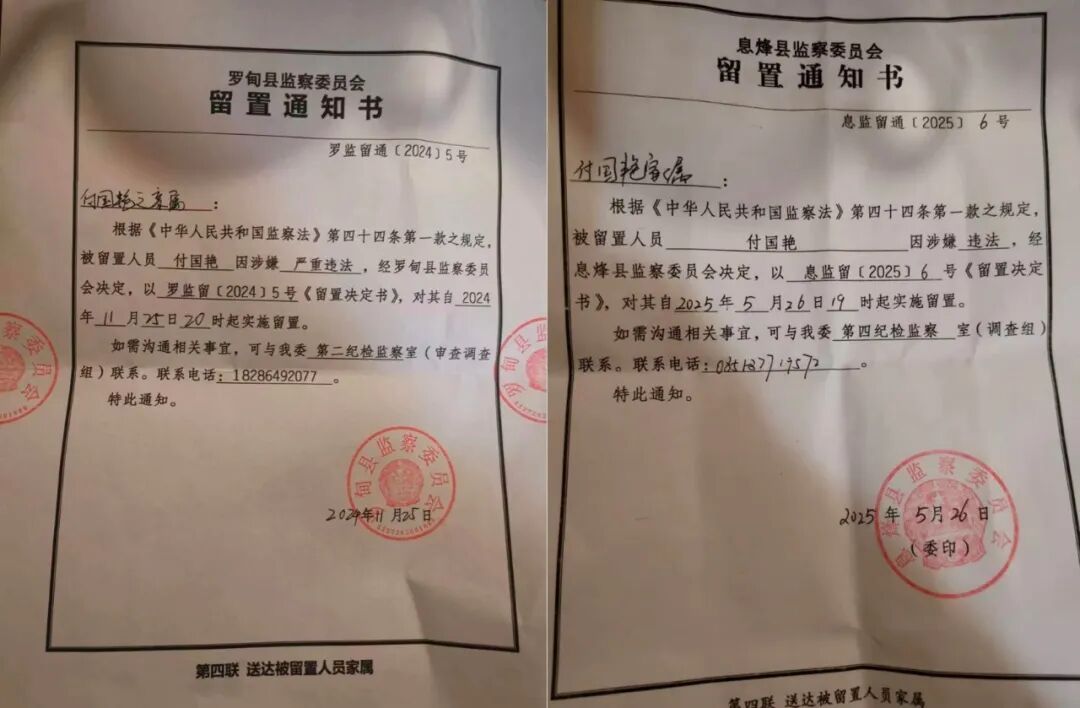 罗甸县监察委员会
留置通知书
罗监留通〔2024〕5号
付国艳之家属：
根据《中华人民共和国监察法》第四十四条第一款之规定，
被留置人员 付国艳 因涉嫌 严重违法，经罗甸县监察委员
会决定，以 罗监留〔2024〕5号《留置决定书》，对其自2024
年11月25日20时起实施留置。
如需沟通相关事宜，可与我委 第二纪检监察室（审查调查
组）联系。联系电话：18286492077。
特此通知。
2024年11月25日
第四联 送达被留置人员家属
息烽县监察委员会
留置通知书
息监留通〔2025〕6号
付国艳家属：
根据《中华人民共和国监察法》第四十四条第一款之规定，
被留置人员 付国艳 因涉嫌 违法，经
息烽县监察委员会决定，以 息监留〔2025〕6 号《留置决定
书》，对其自2025年5月26日19时起实施留置。
如需沟通相关事宜，可与我委 第四纪检监察 室（调查组）
联系。联系电话：
特此通知。
2025年5月26日
（委印）
第四联 送达被留置人员家属